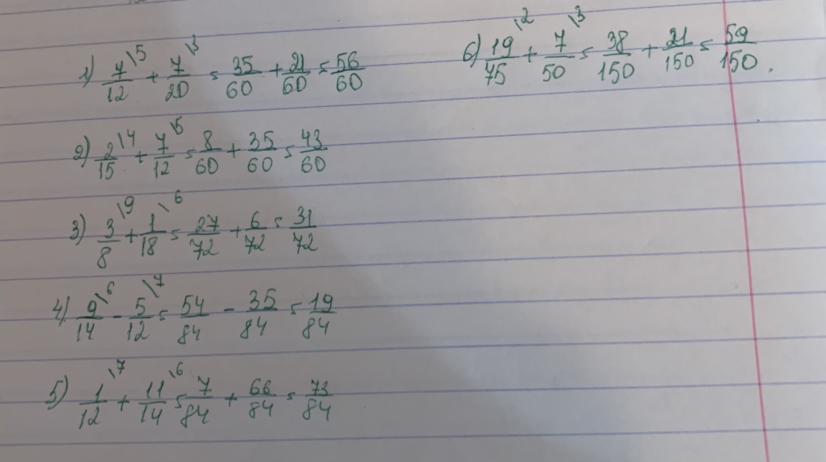 1) 7\5/12 + 7\3/20 = 35/60 + 21/60 = 56/60
2) 2\4/15 + 7\5/12 = 8/60 + 35/60 = 43/60
3) 3\9/8 + 1\6/18 = 27/72 + 6/72 = 31/72
4) 9\6/14 - 5\7/12 = 54/84 - 35/84 = 19/84
5) 1\7/12 + 11\6/14 = 7/84 + 66/84 = 73/84
6) 19\2/75 + 7\3/50 = 38/150 + 21/150 = 59/150.